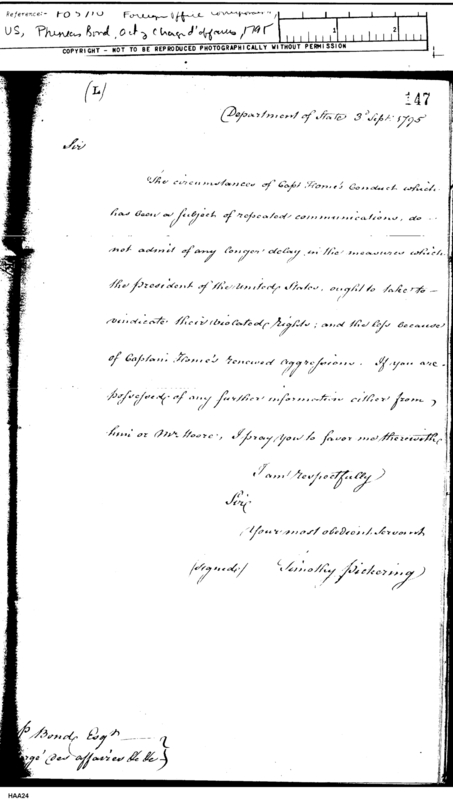 Reference:- FO 5/10 Foreign Office
US, Phineas Bond, actg Chargé d'affaires, 1795
1 2
COPYRIGHT - NOT TO BE REPRODUCED PHOTOGRAPHICALLY WITHOUT PERMISSION
(L)
147
Department of State 3d Sept. 1795
Sir
The circumstances of Capt Home's Conduct which
has been a subject of repeated communications, do
not admit of any longer delay in the measures which
the President of the United States, ought to take to
vindicate their violated Rights; and the less because
of Captain Home's renewed aggressions. If you are
possessed of any further information either from
him or Mr Moore, I pray you to favor me therewith.
I am respectfully
Sir
Your most obedient Servant
(signed) Timothy Pickering
P Bond Esqr
argé des affaires &c &c
HAA24